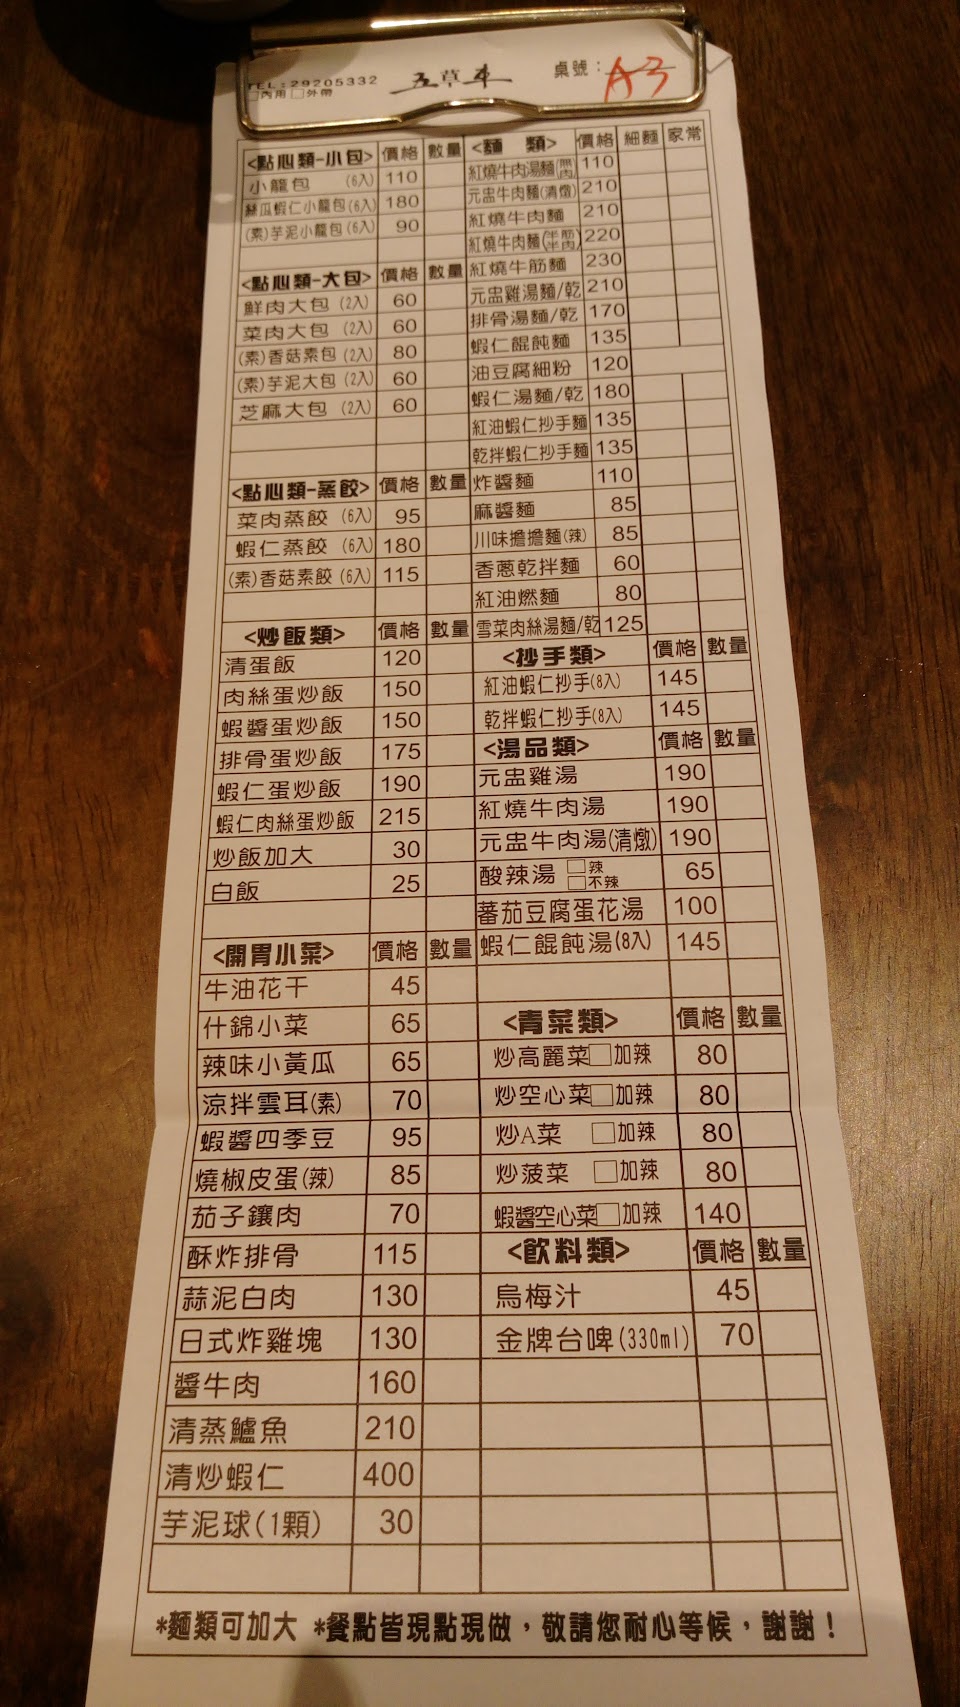 TEL:29205332
□內用 □外帶
五草車
桌號：A3
<點心類-小包> 價格 數量
小籠包 (6入) 110
絲瓜蝦仁小籠包(6入) 180
(素)芋泥小籠包(6入) 90
<點心類-大包> 價格 數量
鮮肉大包 (2入) 60
菜肉大包 (2入) 60
(素)香菇素包 (2入) 80
(素)芋泥大包 (2入) 60
芝麻大包 (2入) 60
<點心類-蒸餃> 價格 數量
菜肉蒸餃 (6入) 95
蝦仁蒸餃 (6入) 180
(素)香菇素餃 (6入) 115
<炒飯類> 價格 數量
清蛋飯 120
肉絲蛋炒飯 150
蝦醬蛋炒飯 150
排骨蛋炒飯 175
蝦仁蛋炒飯 190
蝦仁肉絲蛋炒飯 215
炒飯加大 30
白飯 25
<開胃小菜> 價格 數量
牛油花干 45
什錦小菜 65
辣味小黃瓜 65
涼拌雲耳(素) 70
蝦醬四季豆 95
燒椒皮蛋(辣) 85
茄子鑲肉 70
酥炸排骨 115
蒜泥白肉 130
日式炸雞塊 130
醬牛肉 160
清蒸鱸魚 210
清炒蝦仁 400
芋泥球(1顆) 30
<麵 類> 價格 細麵 家常
紅燒牛肉湯麵(無肉) 110
元盅牛肉麵(清燉) 210
紅燒牛肉麵 210
紅燒牛肉麵(半筋半肉) 220
紅燒牛筋麵 230
元盅雞湯麵/乾 210
排骨湯麵/乾 170
蝦仁餛飩麵 135
油豆腐細粉 120
蝦仁湯麵/乾 180
紅油蝦仁抄手麵 135
乾拌蝦仁抄手麵 135
炸醬麵 110
麻醬麵 85
川味擔擔麵(辣) 85
香蔥乾拌麵 60
紅油燃麵 80
雪菜肉絲湯麵/乾 125
<抄手類> 價格 數量
紅油蝦仁抄手(8入) 145
乾拌蝦仁抄手(8入) 145
<湯品類> 價格 數量
元盅雞湯 190
紅燒牛肉湯 190
元盅牛肉湯(清燉) 190
酸辣湯 □辣 □不辣 65
蕃茄豆腐蛋花湯 100
蝦仁餛飩湯(8入) 145
<青菜類> 價格 數量
炒高麗菜□加辣 80
炒空心菜□加辣 80
炒A菜 □加辣 80
炒菠菜 □加辣 80
蝦醬空心菜□加辣 140
<飲料類> 價格 數量
烏梅汁 45
金牌台啤(330ml) 70
*麵類可加大 *餐點皆現點現做，敬請您耐心等候，謝謝！